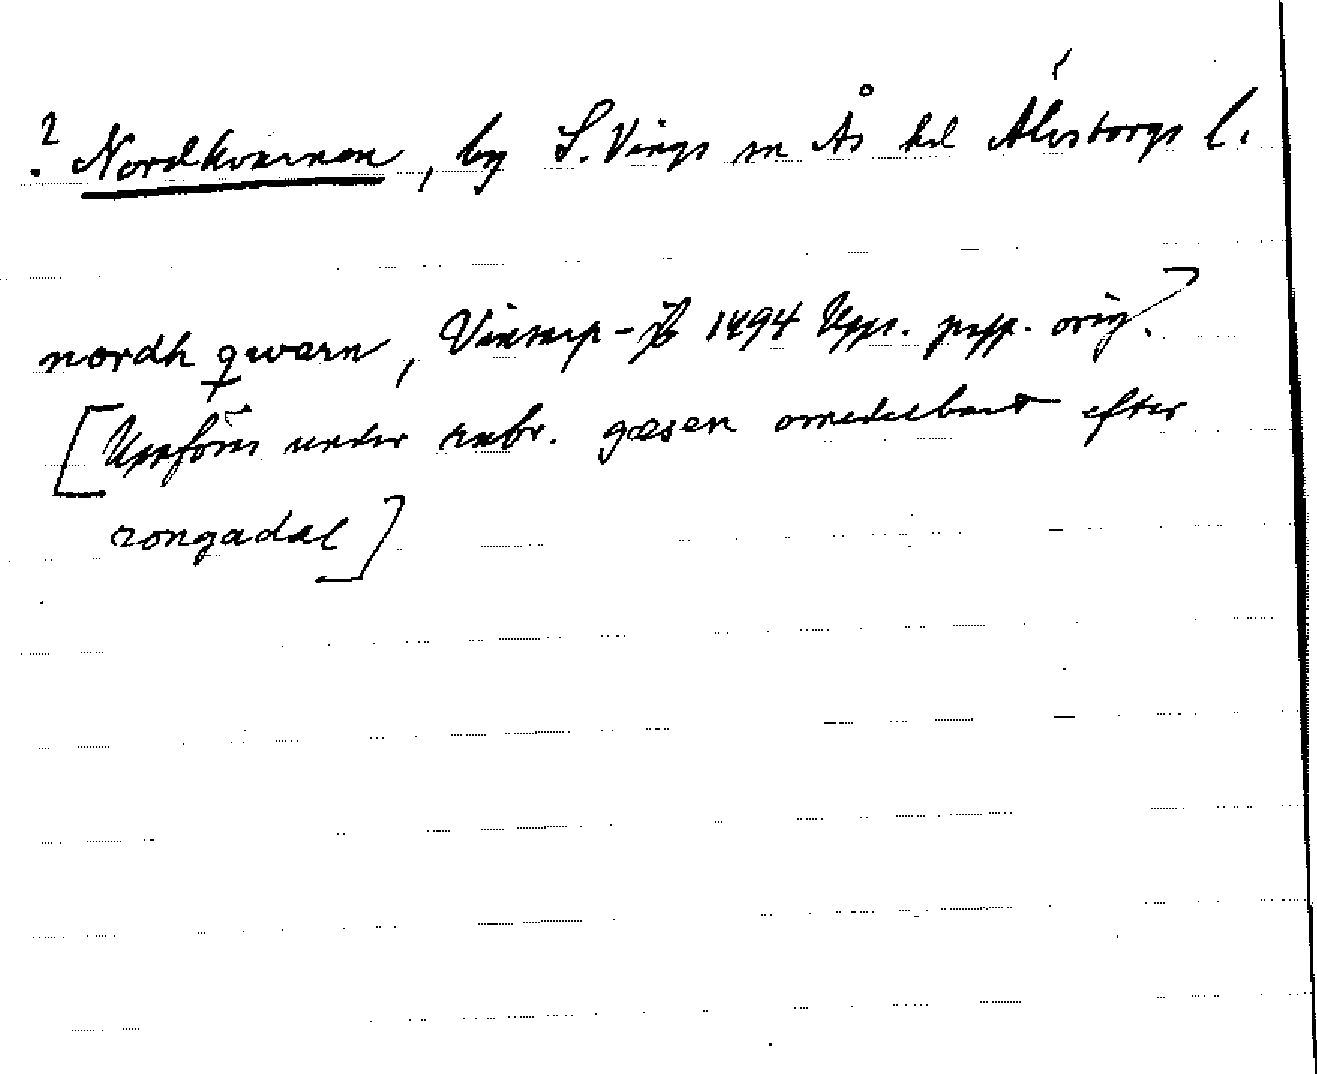 ? Nordkvarnen, by S. Vings sn Ås hd Älvsborgs l.
nordh qwarn, Vinstorp-jb 1494 Upps. papp. orig.
[Uppförs under rubr. gæsen omedelbart efter
rongadal]